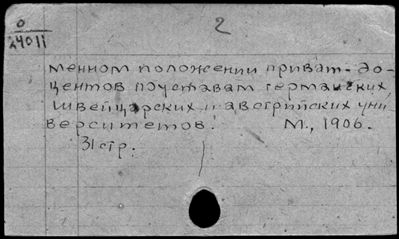 0
24011
2
менном положении приват-до-
центов по уставам германских,
швейцарских и австрийских уни
верситетов.
М., 1906.
31 стр.